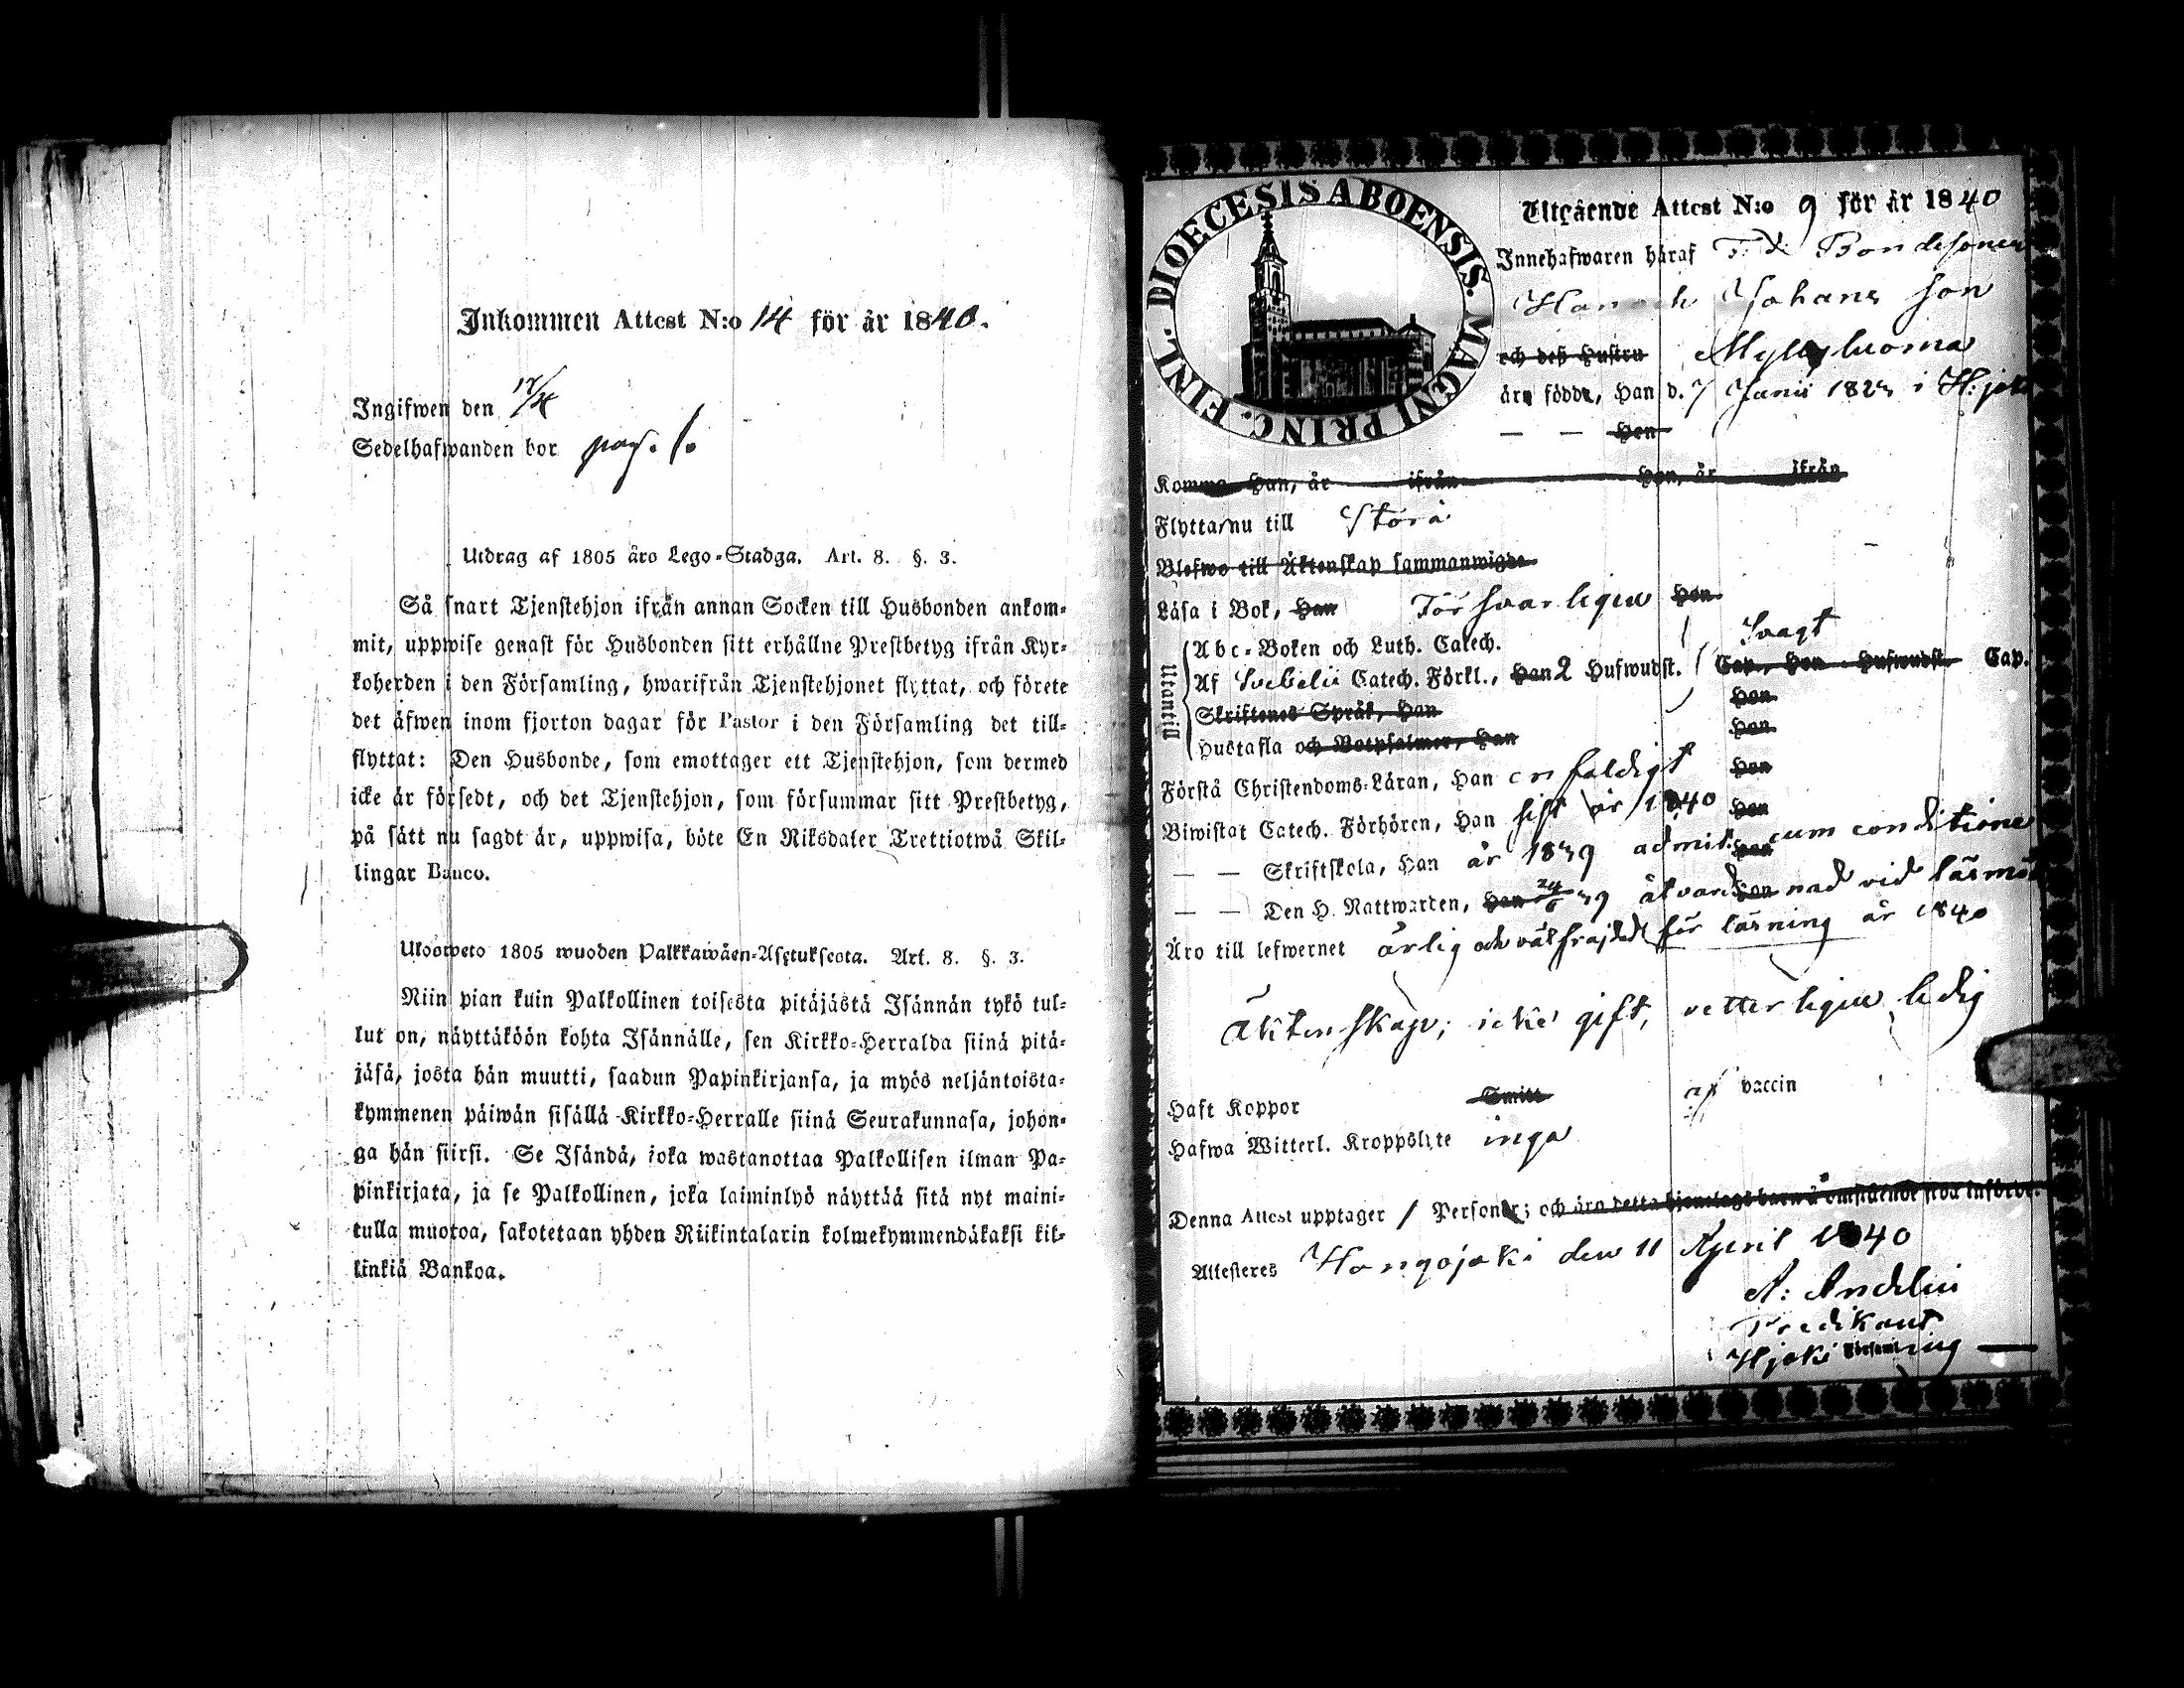 Inkommen Attest N:o 14 för år 1840.
Ingifwen den 17/4
Sedelhafwanden bor pag.
Utdrag af 1805 års Lego-Stadga. Art. 8. §. 3.
Så snart Tjenstehjon ifrån annan Socken till Husbonden ankom-
mit, uppwise genast för Husbonden sitt erhållne Prestbetyg ifrån Kyr-
koherden i den Församling, hwarifrån Tjenstehjonet flyttat, och förete
det äfwen inom fjorton dagar för Pastor i den Församling det till-
flyttat: Den Husbonde, som emottager ett Tjenstehjon, som dermed
icke är försedt, och det Tjenstehjon, som försummar sitt Prestbetyg,
på sätt nu sagdt är, uppwisa, böte En Riksdaler Trettiotwå Skil-
lingar Banco.
Ulosweto 1805 wuoden Palkkawäen-Asetuksesta. Art. 8. §. 3.
Niin pian kuin Palkollinen toisesta pitäjästä Isännän tykö tul-
lut on, näyttäköön kohta Isännälle, sen Kirkko-Herralda siinä pitä-
jäsä, josta hän muutti, saadun Papinkirjansa, ja myös neljäntoista-
kymmenen päiwän sisällä Kirkko-Herralle siinä Seurakunnasa, johon-
ga hän siirsi. Se Isändä, joka wastanottaa Palkollisen ilman Pa-
pinkirjata, ja se Palkollinen, joka laiminlyö näyttää sitä nyt maini-
tulla muotoa, sakotetaan yhden Riikintalarin kolmekymmendäkaksi kil-
linkiä Bankoa.
DIOECESIS ABOENSIS. MAGNI PRINC. FINL.
Utgående Attest N:o 9 för år 1840
Innehafwaren häraf F. d. Bondesonen
Johans son
och deß Hustru Myllyluoma
äro födde, Han d. 7 Junii i H:joki
— — Hon
Komma Han, år ifrån Hon, år ifrån
Flytta nu till Storå
Blefwo till Äktenskap sammanwigde
Läsa i Bok, Han Försvarligen Hon
Utantill
Abc-Boken och Luth. Catech. Svagt
Af Svebelii Catech. Förkl., Han 2 Hufwudst. Cap., Hon Hufwudst. Cap.
Skriftenes Språk, Han Hon
Hustafla och Botpsalmer, Han Hon
Förstå Christendoms-Läran, Han enfaldigt Hon
Biwistat Catech. Förhören, Han sist år 1840 Hon
— — Skriftskola, Han år 1839 admit. cum conditione Hon
— — Den H. Nattwarden, Han 24/6 39 åtvarnad vid läsmöt Hon
Äro till lefwernet ärlig och välfrejdad för läsning år 1840
Äktenskap; icke gift, vetterligen ledig
Haft Koppor Smitt af vaccin
Hafwa Witterl. Kroppslyte inga
Denna Attest upptager 1 Personer; och äro detta hjonelags barn å omstående sida införde.
Attesteres Hongojoki den 11 April 1840
A: Andelin
Predikant
Hjoki Församling